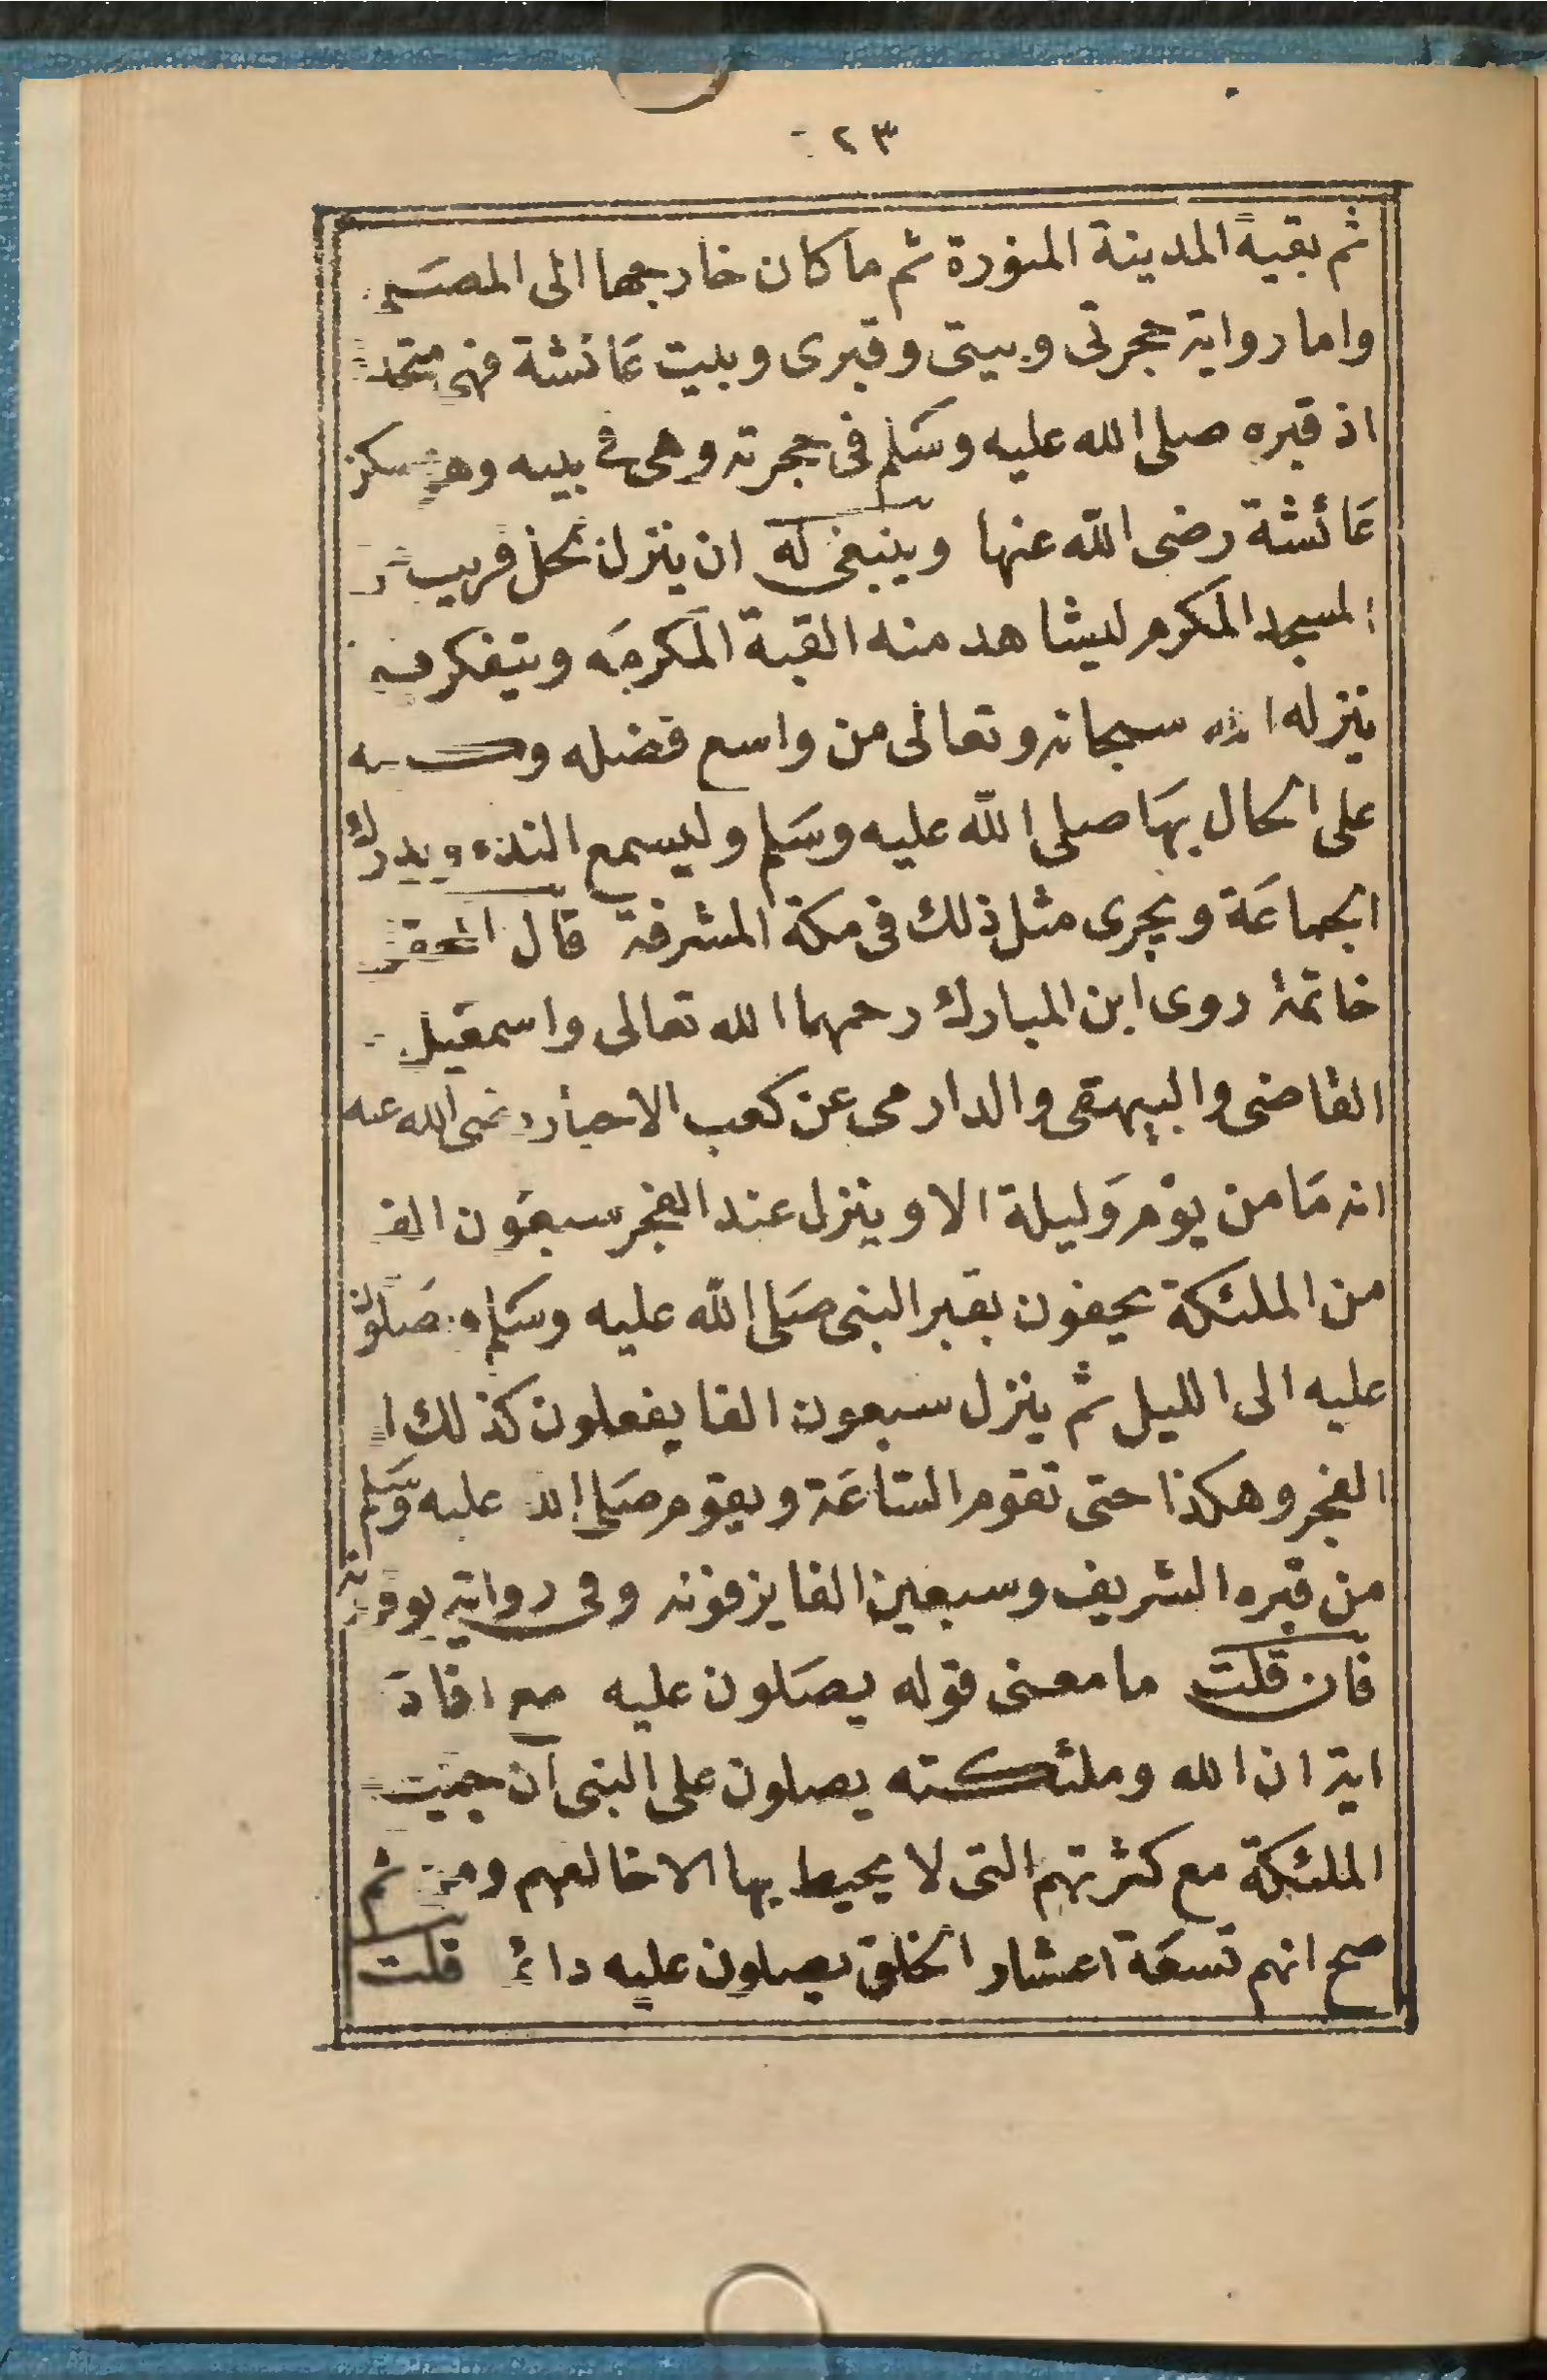 ٢٣
ثم بقية المدينة المنورة ثم ما كان خارجها الى المصلى
واما رواية حجرتى وبيتى وقبرى وبيت عائشة فهى متحدة
اذ قبره صلى الله عليه وسلم فى حجرته وهى فى بيته وهو مسكن
عائشة رضى الله عنها وينبغى له ان ينزل بمحل قريب من
المسجد المكرم ليشاهد منه القبة المكرمه ويتفكر فيما
ينزله الله سبحانه وتعالى من واسع فضله
على الحال بها صلى الله عليه وسلم وليسمع النداء ويدرك
الجماعة ويجرى مثل ذلك فى مكة المشرفة قال المحقق
خاتمة روى ابن المبارك رحمهما الله تعالى واسمعيل
القاضى والبيهقى والدارمى عن كعب الاحبار رضى الله عنه
انه ما من يوم وليلة الا وينزل عند الفجر سبعون الف
من الملئكة يحفون بقبر النبى صلى الله عليه وسلم يصلون
عليه الى الليل ثم ينزل سبعون الفا يفعلون كذلك الى
الفجر وهكذا حتى تقوم الساعة ويقوم صلى الله عليه وسلم
من قبره الشريف وسبعين الفا يزفونه وفى رواية يوقرونه
فان قلت ما معنى قوله يصلون عليه مع افادة
اية ان الله وملئكته يصلون على النبى ان جميع
الملئكة مع كثرتهم التى لا يحيط بها الا خالقهم ومن ثم
صح انهم تسعة اعشار الخلق يصلون عليه دائما قلت